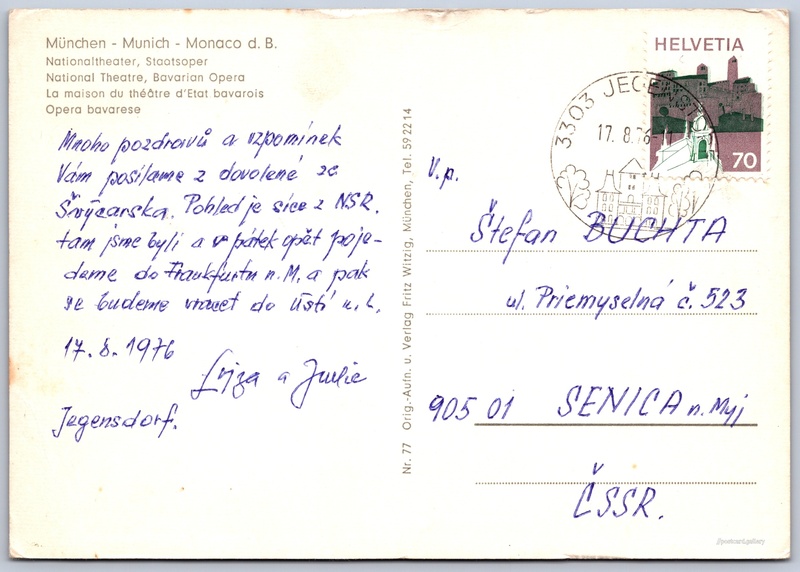 München - Munich - Monaco d. B.
Nationaltheater, Staatsoper
National Theatre, Bavarian Opera
La maison du théâtre d'Etat bavarois
Opera bavarese
Mnoho pozdravů a vzpomínek
Vám posíláme z dovolené ze
Švýcarska. Pohled je sice z NSR.
tam jsme byli a v pátek opět poje-
deme do Frankfurtu n. M. a pak
se budeme vracet do Ústí n. L.
17. 8. 1976
a Julie
Jegensdorf.
Nr. 77 Orig.-Aufn. u. Verlag Fritz Witzig, München, Tel. 59 22 14
HELVETIA
70
3303 JEGE
17. 8. 76
V. p.
Štefan BUCHTA
ul. Priemyselná č. 523
905 01 SENICA n. Myj
ČSSR.